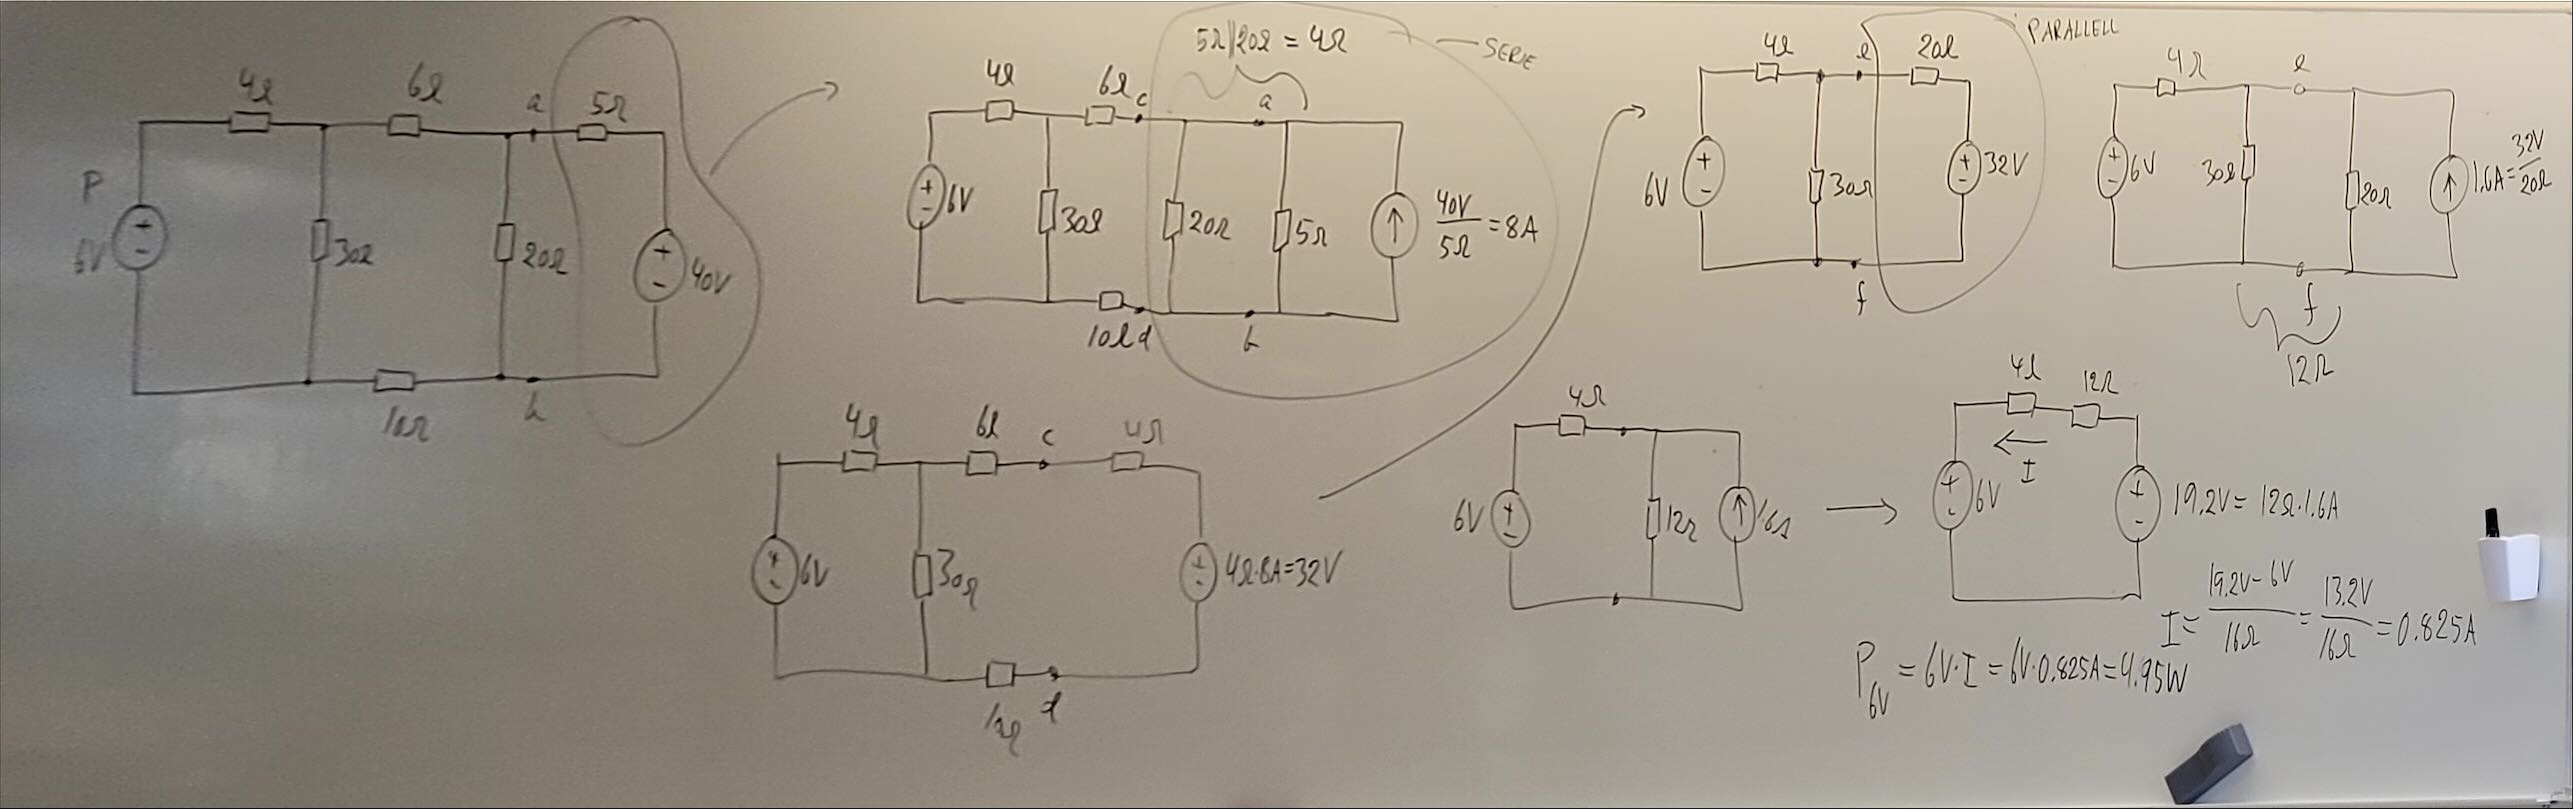 4Ω 6Ω a 5Ω
P
6V
+
-
30Ω
20Ω
+
-
40V
10Ω
b
5Ω||20Ω = 4Ω
SERIE
4Ω 6Ω c a
+
-
6V
30Ω
20Ω
5Ω
↑
40V
5Ω
=8A
10Ω d b
4Ω 6Ω c 4Ω
+
-
6V
30Ω
+
-
4Ω·8A=32V
10Ω d
PARALLELL
4Ω e 20Ω
6V
+
-
30Ω
+
-
32V
f
4Ω e
+
-
6V
30Ω
20Ω
↑
1.6A=
32V
20Ω
f
12Ω
4Ω
6V
+
-
12Ω
↑
4Ω 12Ω
I
+
-
6V
+
-
19.2V= 12Ω·1.6A
I= 19.2V-6V = 13.2V =0.825A
16Ω 16Ω
P6V = 6V·I = 6V·0.825A=4.95W